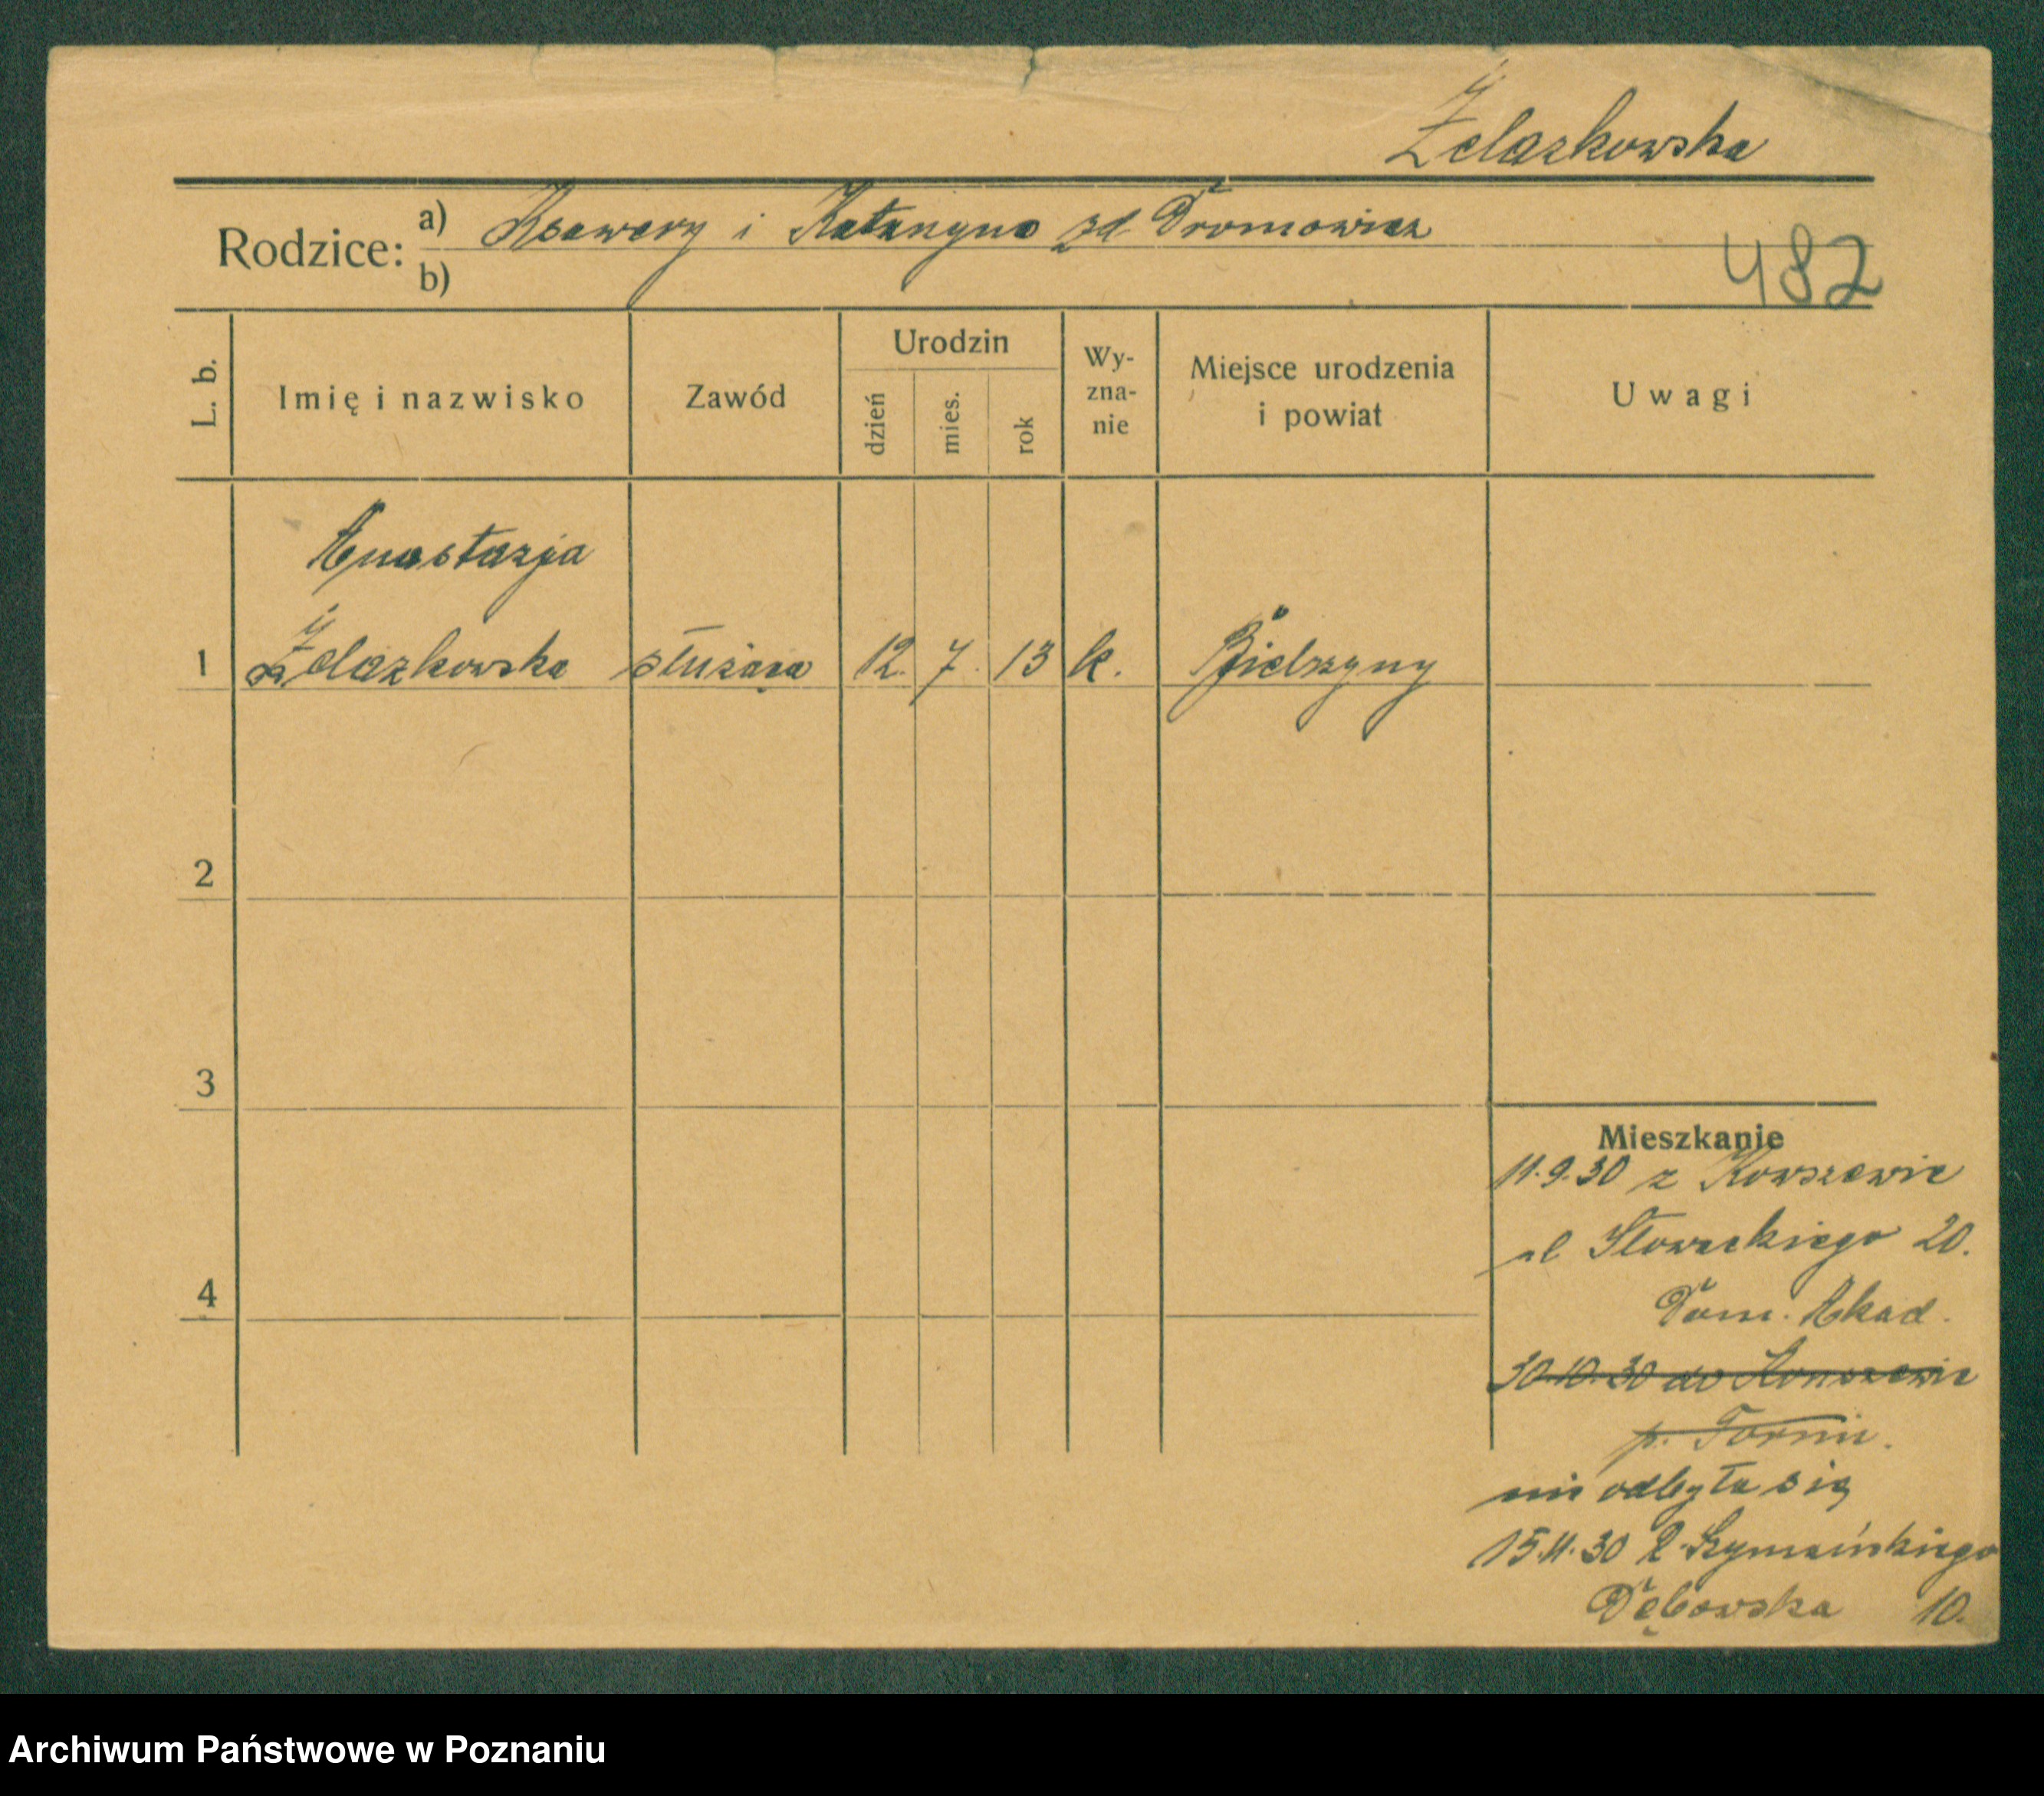 Żelazkowska
Rodzice: a) Ksawery i Katarzyna zd Dromowicz
b)
482
L. b.
Imię i nazwisko
Zawód
Urodzin
dzień
mies.
rok
Wy-
zna-
nie
Miejsce urodzenia
i powiat
Uwagi
Anastazja
1 Żelazkowska służąca 12. 7. 13 k. Bielszyny
2
3
4
Mieszkanie
11.9.30 z
ul Słowackiego 20.
Dom. Akad.
30.10.30 do
p. Toruń.
nie odbyła się
15.11.30 Szymańskiego
Dębowska 10.
Archiwum Państwowe w Poznaniu